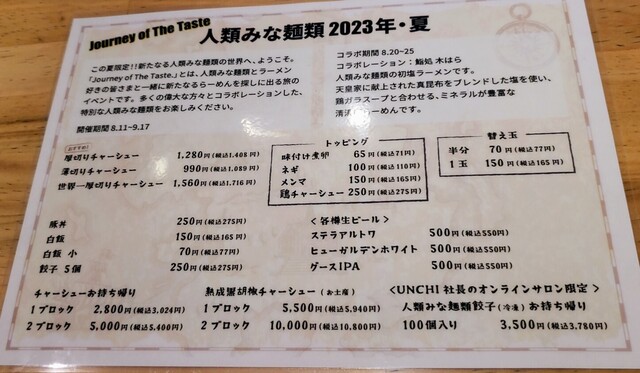 Journey of The Taste
人類みな麺類 2023年・夏
この夏限定!!新たなる人類みな麺類の世界へ、ようこそ。
「Journey of The Taste.」とは、人類みな麺類とラーメン
好きの皆さまと一緒に新たなるらーめんを探しに出る旅の
イベントです。多くの偉大な方々とコラボレーションした、
特別な人類みな麺類をお楽しみください。
開催期間 8.11~9.17
コラボ期間 8.20~25
コラボレーション:鮨処 木はら
人類みな麺類の初塩ラーメンです。
天皇家に献上された真昆布をブレンドした塩を使い、
鶏ガラスープと合わせる、ミネラルが豊富な
らーめんです。
おすすめ!
厚切りチャーシュー 1,280円(税込1,408円)
薄切りチャーシュー 990円(税込1,089円)
世界一厚切りチャーシュー 1,560円(税込1,716円)
トッピング
味付け煮卵 65円(税込71円)
ネギ 100円(税込110円)
メンマ 150円(税込165円)
鶏チャーシュー 250円(税込275円)
替え玉
半分 70円(税込77円)
1玉 150円(税込165円)
豚丼 250円(税込275円)
白飯 150円(税込165円)
白飯 小 70円(税込77円)
餃子 5個 250円(税込275円)
<各種生ビール>
ステラアルトワ 500円(税込550円)
ヒューガルデンホワイト 500円(税込550円)
グースIPA 500円(税込550円)
チャーシューお持ち帰り
1ブロック 2,800円(税込3,024円)
2ブロック 5,000円(税込5,400円)
熟成黒胡椒チャーシュー(お土産)
1ブロック 5,500円(税込5,940円)
2ブロック 10,000円(税込10,800円)
<UNCHI 社長のオンラインサロン限定>
人類みな麺類餃子(冷凍)お持ち帰り
100個入り 3,500円(税込3,780円)